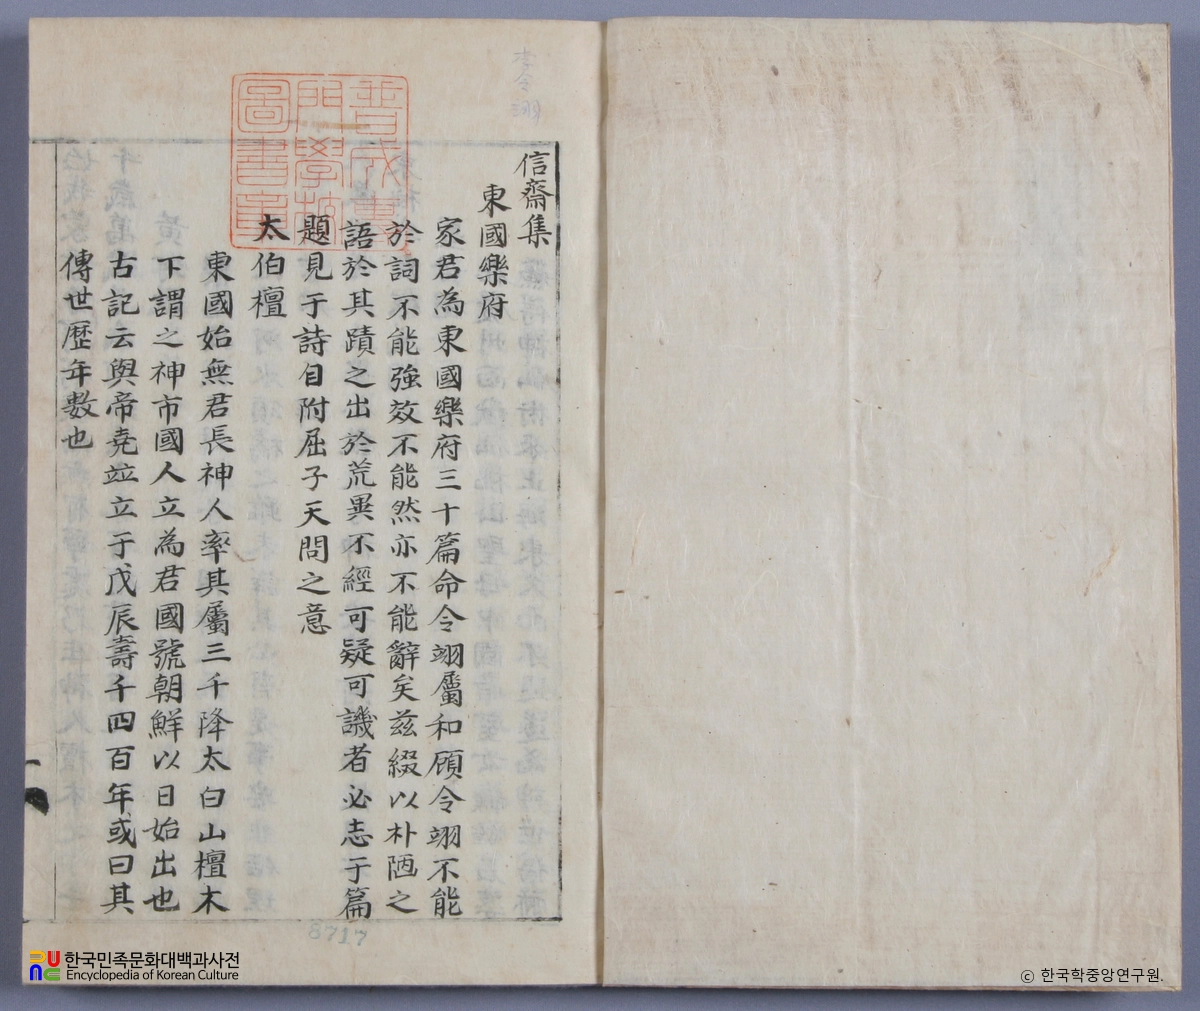 信齋集
東國樂府
家君為東國樂府三十篇命令翊屬和顧令翊不能
於詞不能強效不能然亦不能辭矣茲綴以朴陋之
語於其蹟之出於荒異不經可疑可譏者必志于篇
題見于詩自附屈子天問之意
太伯檀
東國始無君長神人率其屬三千降太白山檀木
下謂之神市國人立為君國號朝鮮以日始出也
古記云與帝堯竝立于戊辰壽千四百年或曰其
傳世歷年數也
普成專
門學校
圖書章
8717
한국민족문화대백과사전
Encyclopedia of Korean Culture
© 한국학중앙연구원.